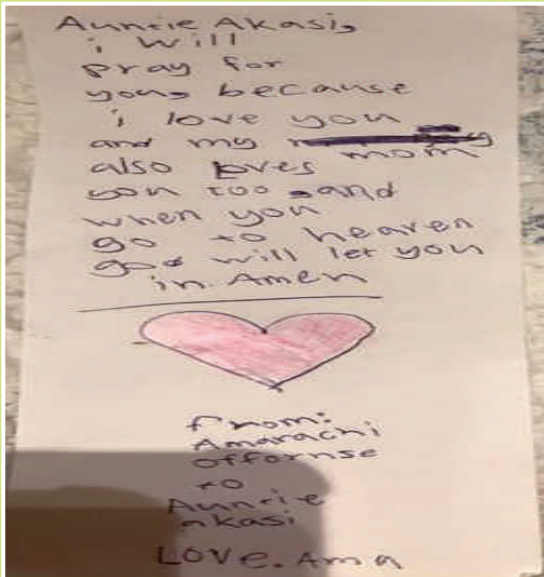 Auntie Akasi,
i will
pray for
you, because
i love you
and my
mom
also loves
you too and
when you
go to heaven
god will let you
in. Amen
from:
Amarachi
Offornse
to
Auntie
akasi
LOVE. Ama